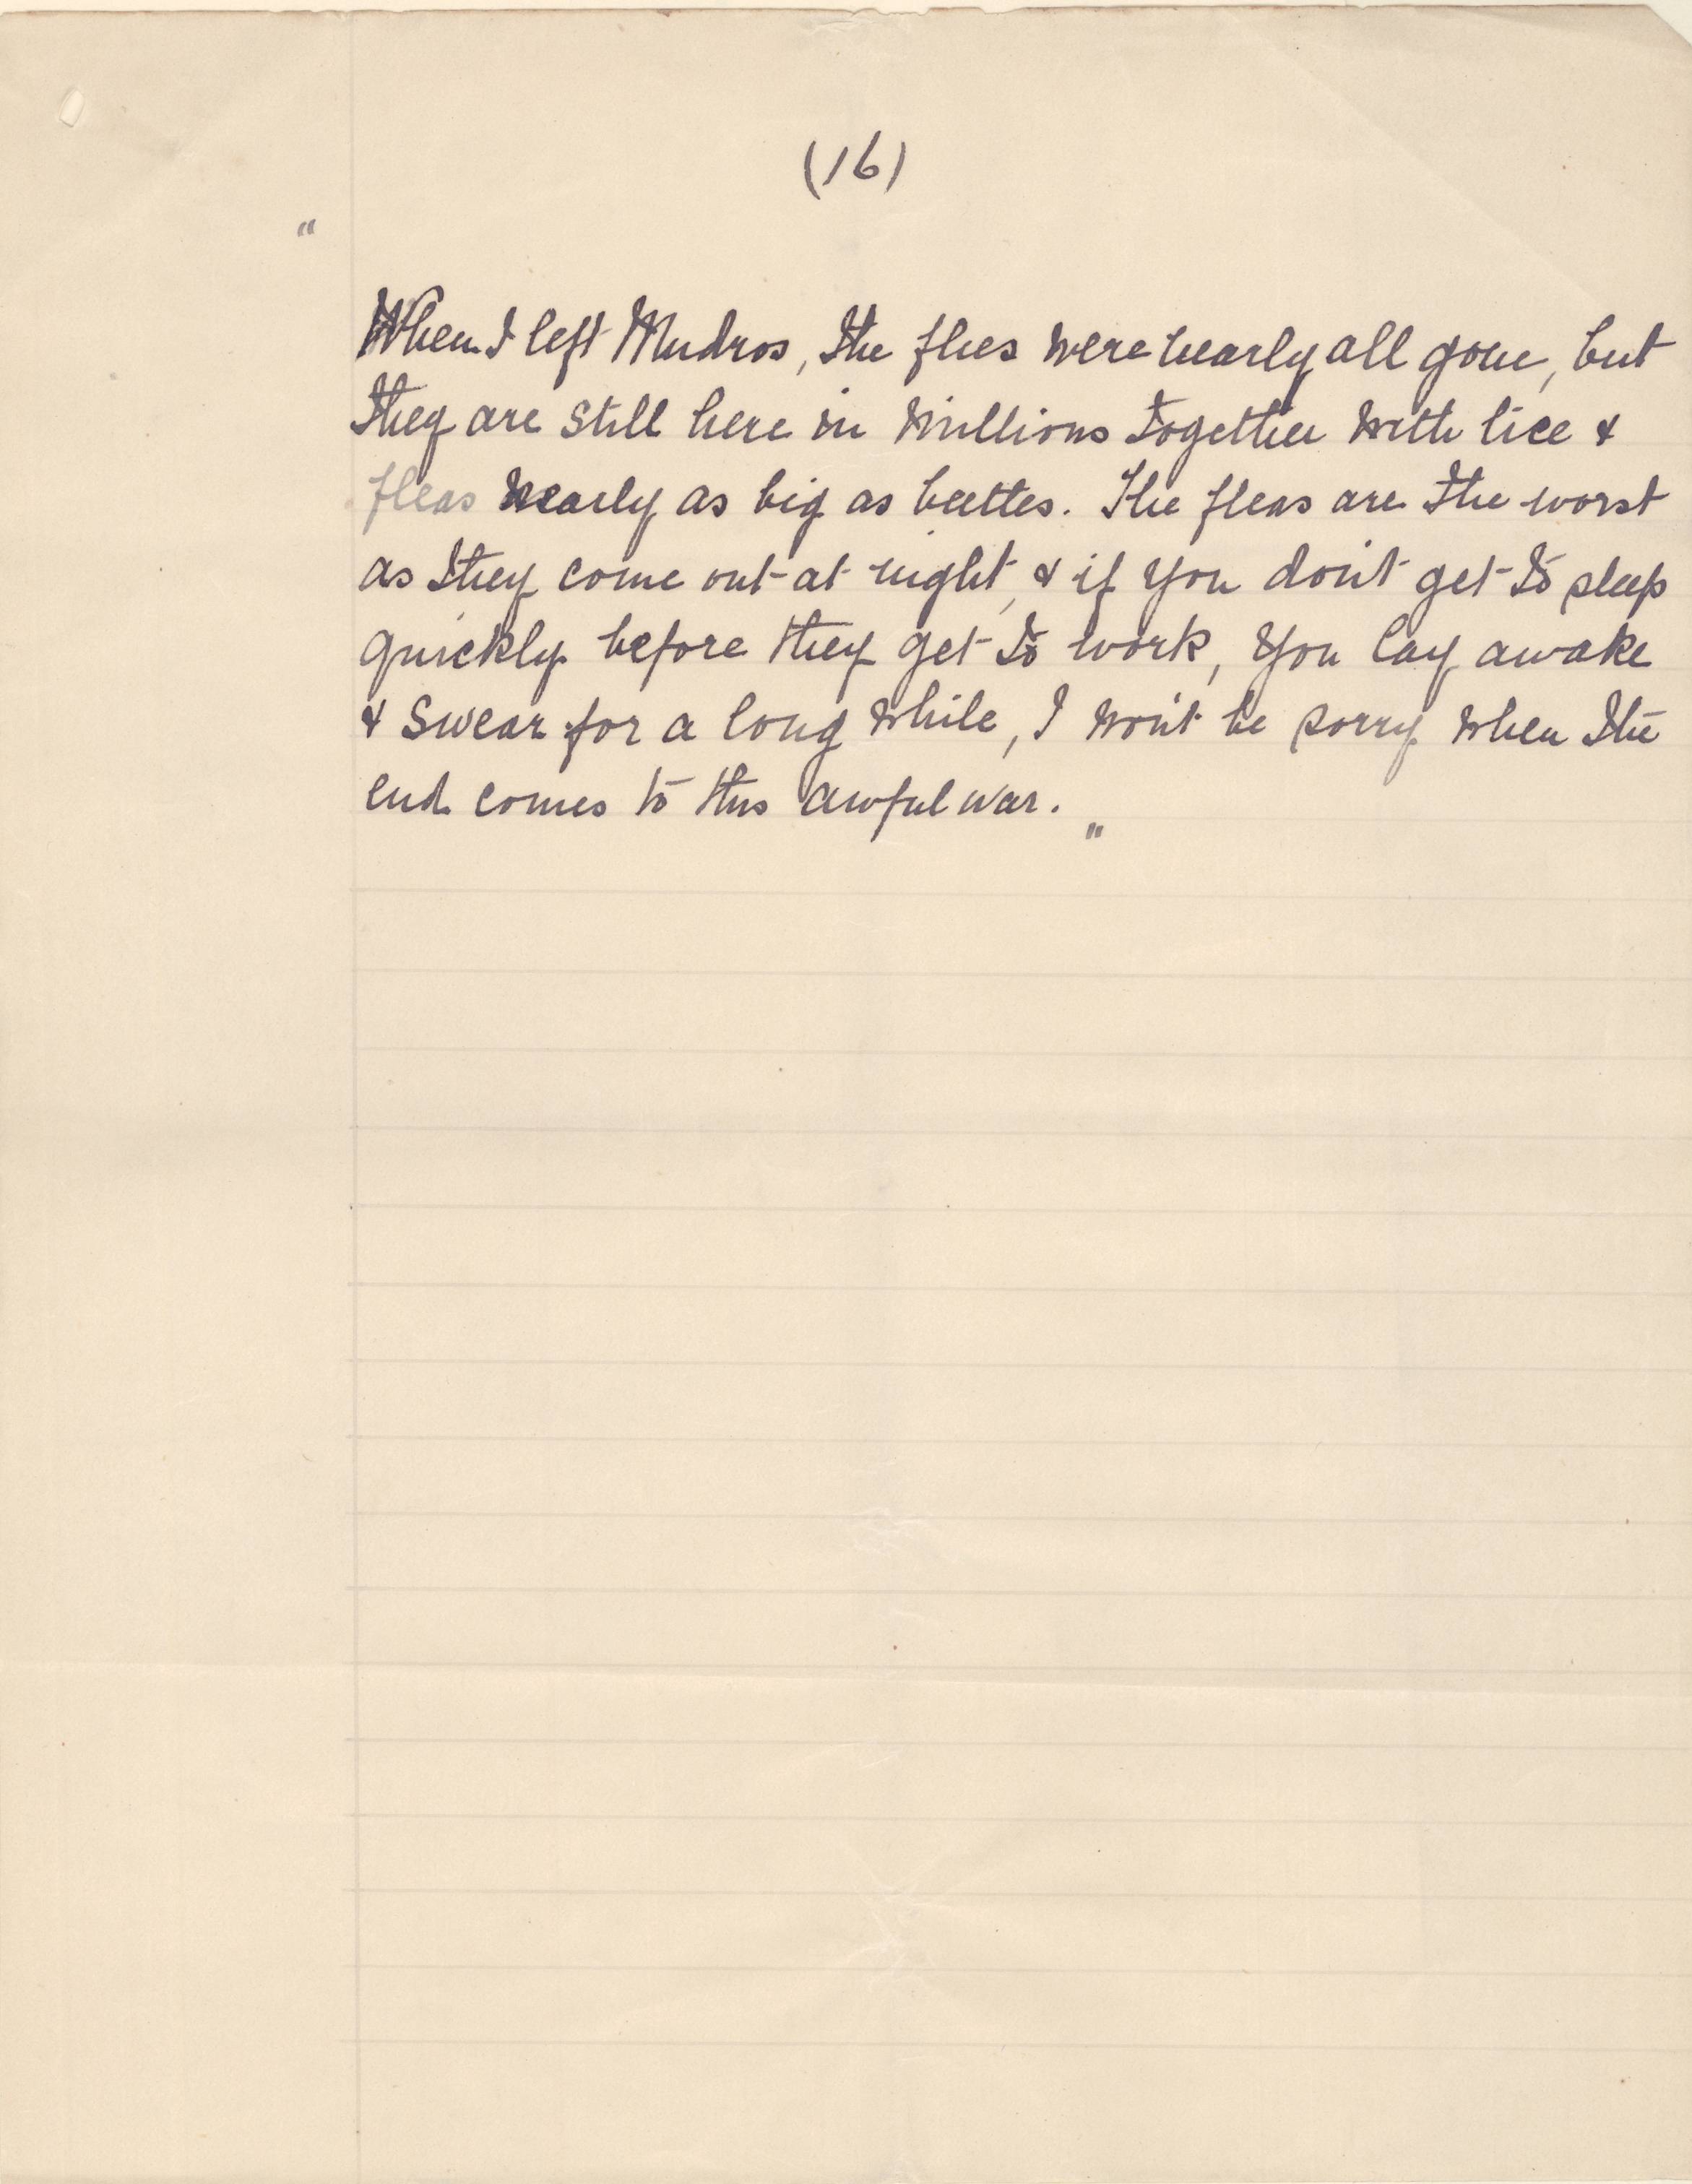 (16)
"
When I left Mudros, the flies were nearly all gone, but
they are still here in millions together with lice &
fleas nearly as big as beetles. The fleas are the worst
as they come out at night, & if you don't get to sleep
quickly before they get to work, you lay awake
& swear for a long while, I won't be sorry when the
end comes to this awful war. "